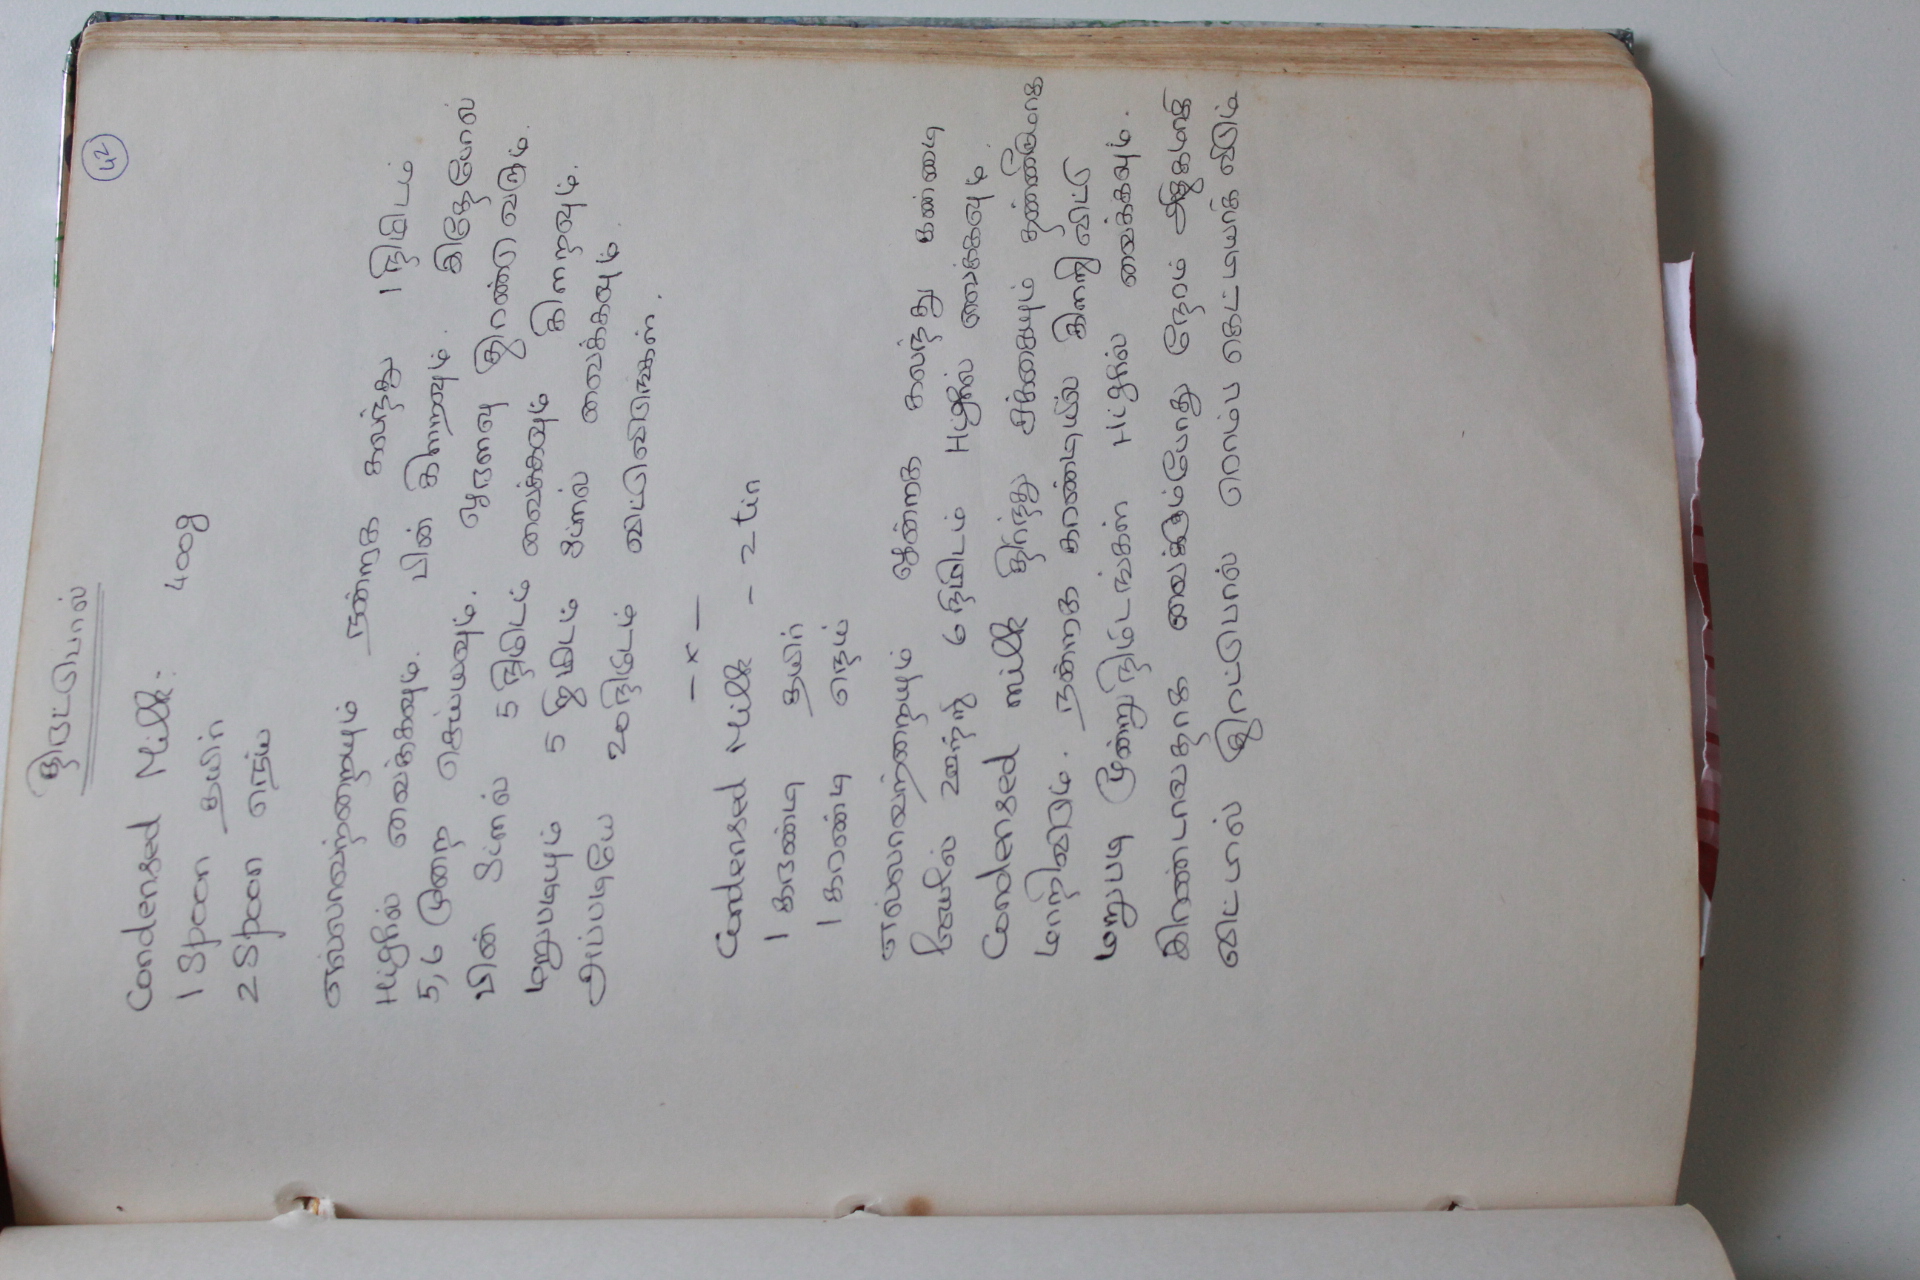 42
திரட்டுப்பால்
Condensed Milk: 400g
1 Spoon தயிர்
2 Spoon நெய்
எல்லாவற்றையும் நன்றாக கலந்து 1 நிமிடம்
High-ல் வைக்கவும். பின் கிளறவும். இதேபோல்
5, 6 முறை செய்யவும். நுரை இரண்டு வரும்.
பின் Simல் 5 நிமிடம் வைக்கவும் கிளறவும்.
மறுபடியும் 5 நிமிடம் Simல் வைக்கவும்.
அப்படியே 20 நிமிடம் விட்டுவிடுங்கள்.
– x –
Condensed Milk – 2 tin
1 கரண்டி தயிர்
1 கரண்டி நெய்
எல்லாவற்றையும் நன்றாக கலந்து கண்ணாடி
bowlல் ஊற்றி 6 நிமிடம் Highல் வைக்கவும்.
Condensed milk திரிந்து சர்க்கரையும் தண்ணீருமாக
மாறிவிடும். நன்றாக கரண்டியில் கிளறி விட்டு
மறுபடி மூன்று நிமிடங்கள் Highல் வைக்கவும்.
இரண்டாவதாக வைக்கும்போது நேரம் அதிகமாகி
விட்டால் திரட்டுப்பால் ரொம்ப கெட்டியாகி விடும்